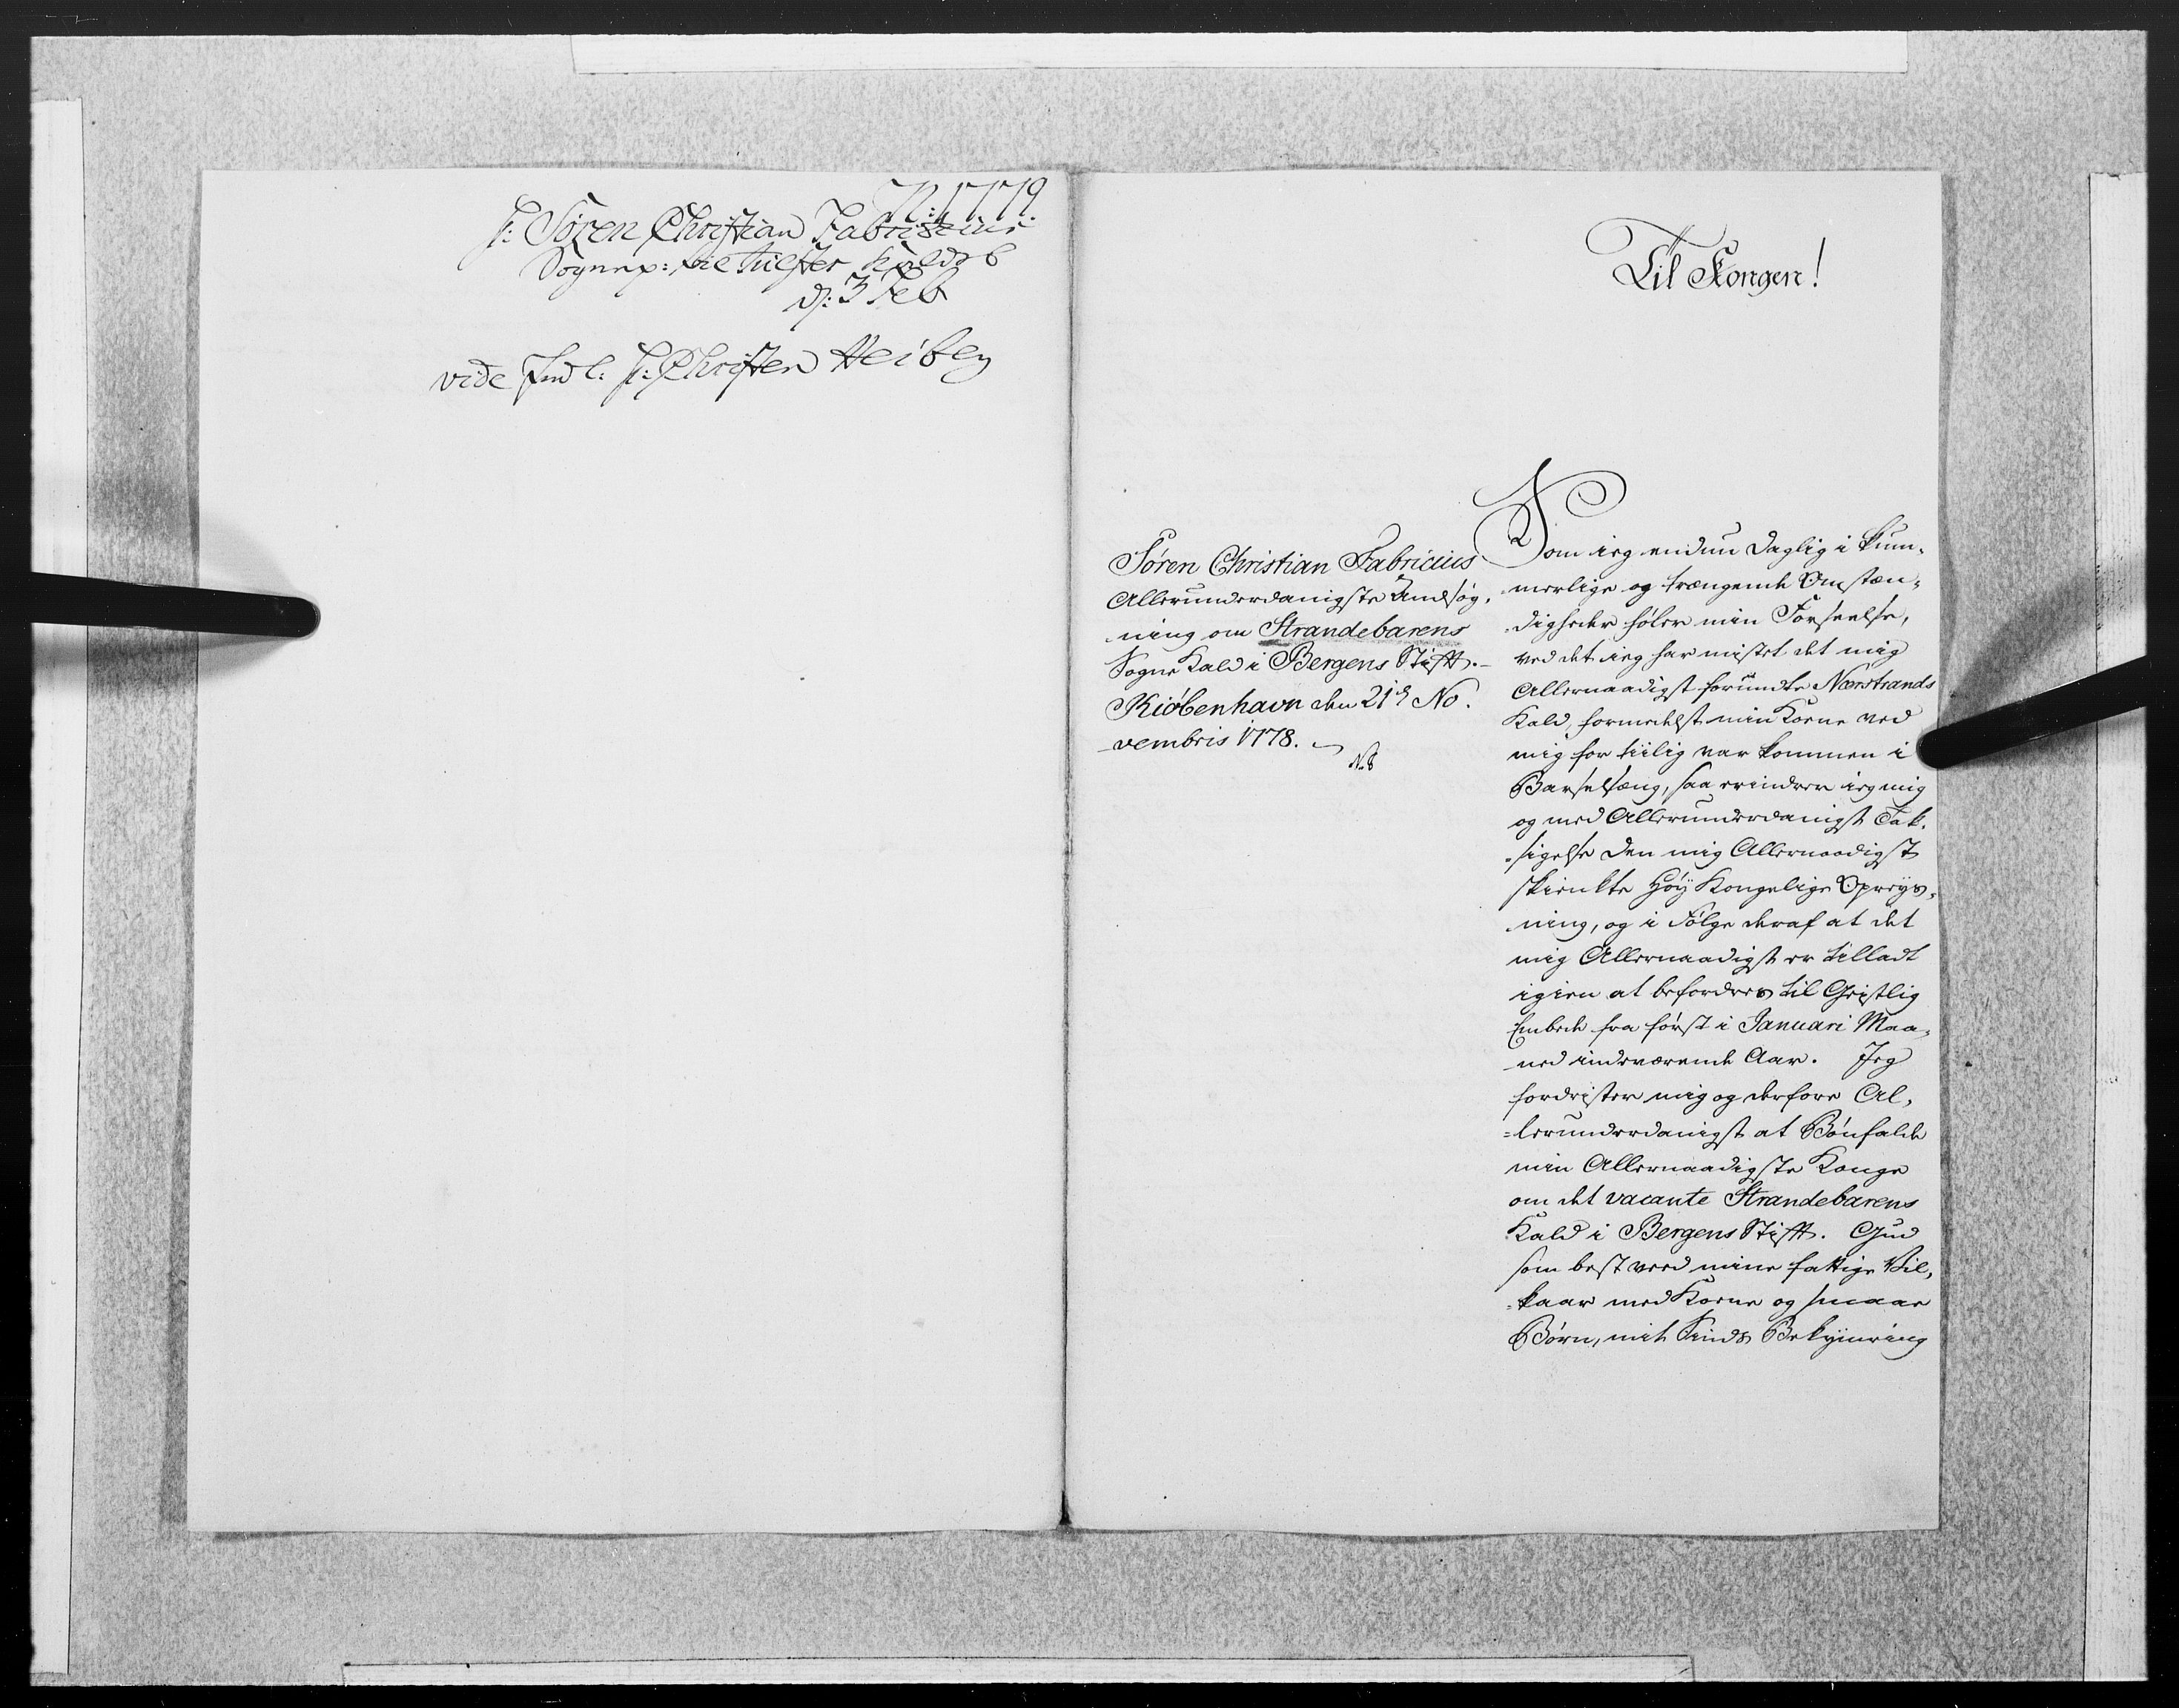 N: 1779.
H: Søren Christian Fabricius
Sognep: til
d: 3 Feb
vide Indl: H: Christen Heiberg
Til Kongen!
Søren Christian Fabricius
Allerunderdanigste Ansøg,
ning om Strandebarens
Sogne Kald i Bergens Stift.
Kiøbenhavn den 21d No.
vembris 1778.
N. 8
Som ieg endnu Daglig i kum,
merlige og trængende Omstæn,
digheder føler min Forseelse,
ved det ieg har mistet det mig
Allernaadigst forundte Nærstrands
Kald, formedelst min Kone ved
mig for tiilig var kommen i
Barselsæng, saa erindrer ieg mig
og med Allerunderdanigst Tak,
sigelse den mig Allernaadigst
skienkte Høy Kongelige Opreys,
ning, og i Følge deraf at det
mig Allernaadigst er tilladt
igien at befordres til Geistlig
Embede fra først i Januari Maa,
ned indeværende Aar. Jeg
fordrister mig og derfore Al,
=lerunderdanigst at Bønfalde
min Allernaadigste Konge
om det vacante Strandebarens
Kald i Bergens Stift. Gud
som best veed mine fattige Vil,
kaar med Kone og smaae
Børn, mit Sinds Bekymring